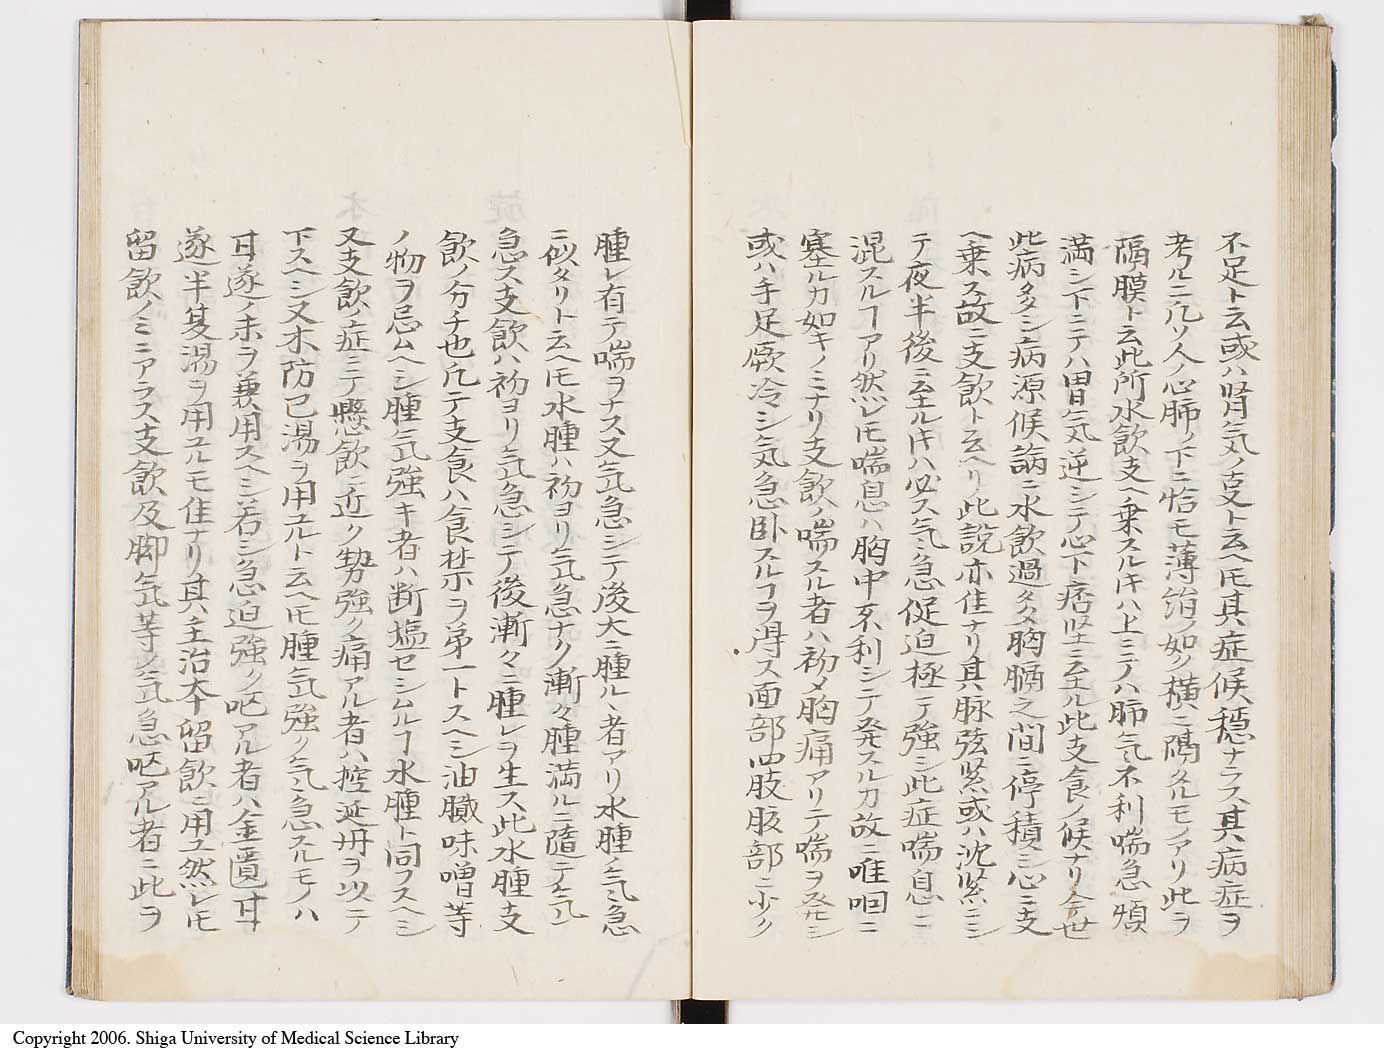 不足ト云或ハ腎気ノ変ト云ヘ𪜈其症候穏ナラス其病症ヲ
考ルニ凡ソ人ノ心肺ノ下ニ恰モ薄紙ノ如ク横ニ隔タルモノアリ此ヲ
隔膜ト云此所水飲支ヘ乗スルキハ上ミニテハ肺気不利喘急煩
満シ下ニテハ胃気逆シテ心下痞堅ニ至ル此支食ノ候ナリ今世
此病多シ病源候論ニ水飲過多ク胸膈之間ニ停積ミ心ニ支
ヘ乗ス故ニ支飲ト云ヘリ此説亦佳ナリ其脉弦緊或ハ沈緊ニシ
テ夜半後ニ至ルキハ必ス気急促迫極テ強シ此症喘息ニ
混スルヿアリ然レ𪜈喘息ハ胸中不利シテ発スルカ故ニ唯咽ニ
塞ルカ如キノミナリ支飲ノ喘スル者ハ初メ胸痛アリテ喘ヲ発シ
或ハ手足厥冷シ気急卧スルヿヲ得ス面部四肢股部ニ少ク
腫レ有テ喘ヲナス又気急シテ後大ニ腫ルヽ者アリ水腫ノ気急
ニ似タリト云ヘ𪜈水腫ハ初ヨリ気急ナク漸々腫満ルニ隨テ気
急ス支飲ハ初ヨリ気急シテ後漸々ニ腫レヲ生ス此水腫支
飲ノ分チ也凡テ支食ハ食禁ヲ第一トスヘシ油膩味噌等
ノ物ヲ忌ムヘシ腫気強キ者ハ断塩セシムルヿ水腫ト同フスヘシ
又支飲ノ症ニテ懸飲ニ近ク勢強ク痛アル者ハ控延丹ヲ以テ
下スヘシ又木防已湯ヲ用ユルト云ヘ𪜈腫気強ク気急スルモノハ
甘遂ノ末ヲ兼用スヘシ若シ急迫強ク呕アル者ハ金匱甘
遂半夏湯ヲ用ユルモ佳ナリ其主治本留飲ニ用ユ然レ𪜈
留飲ノミニアラス支飲及脚気等ノ気急呕アル者ニ此ヲ
Copyright 2006. Shiga University of Medical Science Library